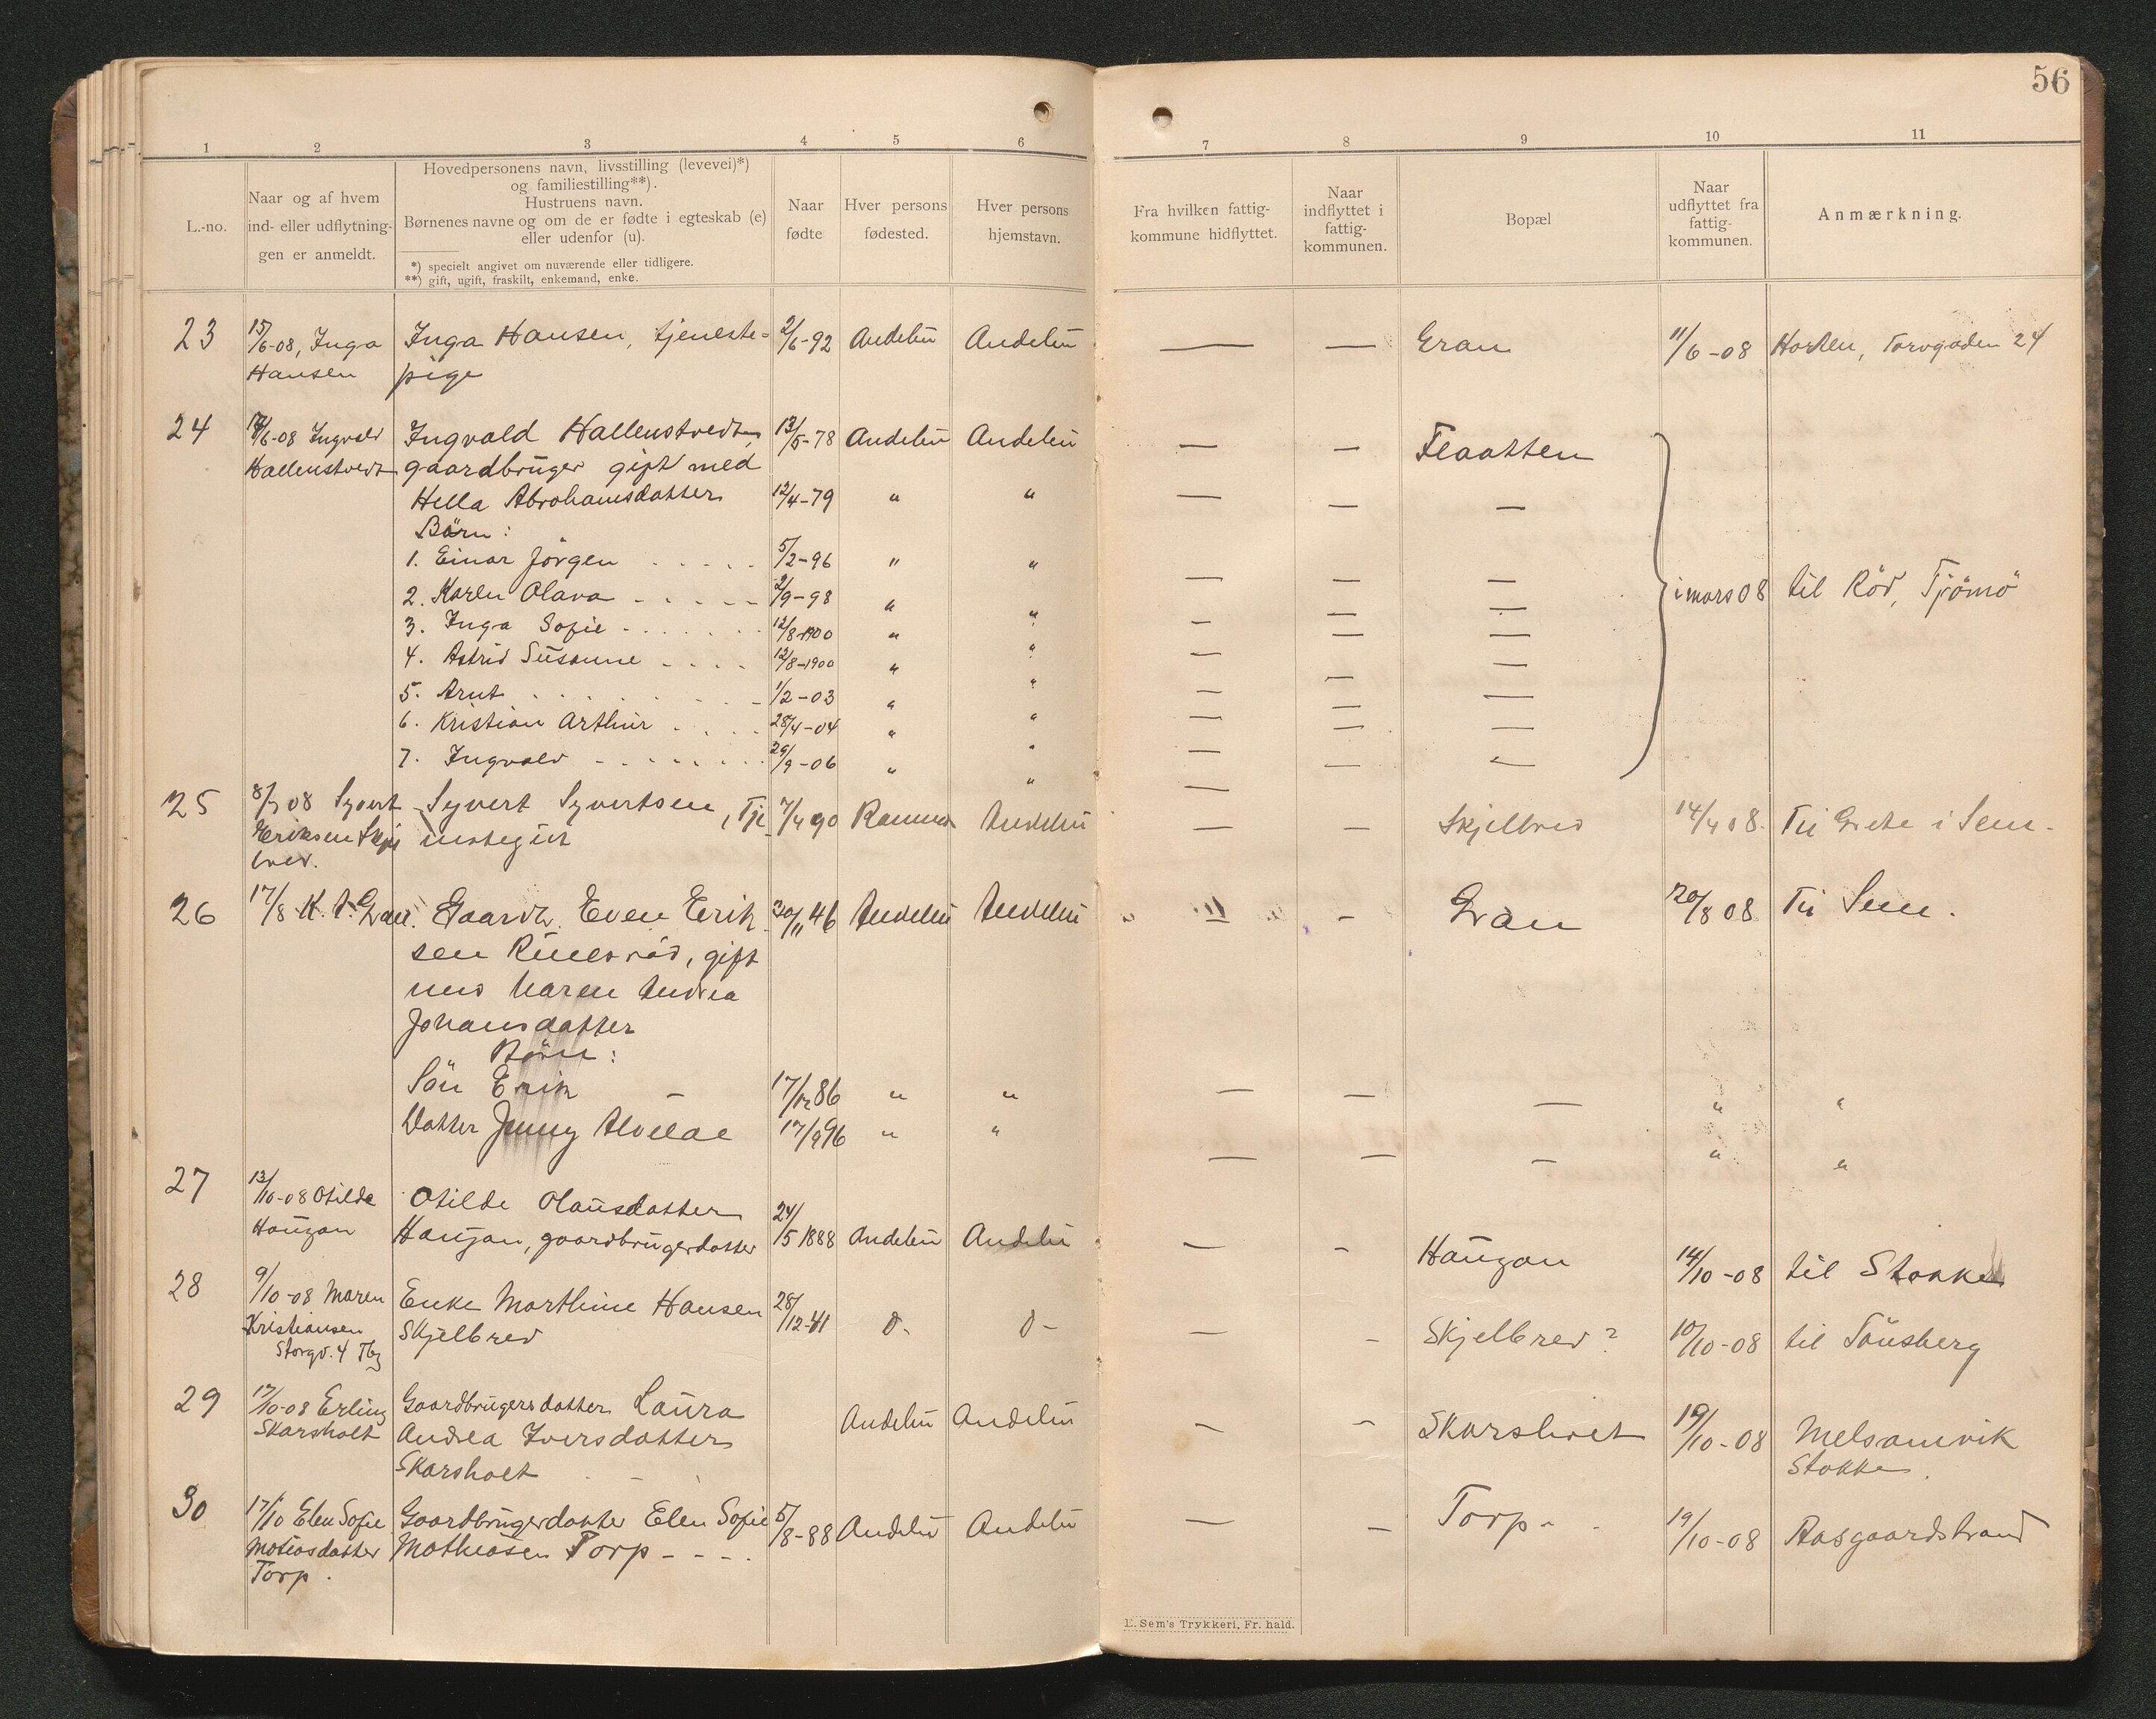 56
1 2 3 4 5 6 7 8 9 10 11
L.-no.
Naar og af hvem
ind- eller udflytning-
gen er anmeldt.
Hovedpersonens navn, livsstilling (levevei)*)
og familiestilling**).
Hustruens navn.
Børnenes navne og om de er fødte i egteskab (e)
eller udenfor (u).
*) specielt angivet om nuværende eller tidligere.
**) gift, ugift, fraskilt, enkemand, enke.
Naar
fødte
Hver persons
fødested.
Hver persons
hjemstavn.
Fra hvilken fattig-
kommune hidflyttet.
Naar
indflyttet i
fattig-
kommunen.
Bopæl
Naar
udflyttet fra
fattig-
kommunen.
Anmærkning.
23 15/6-08, Inga Inga Hansen, tjeneste- 2/6-92 Andebu Andebu — — Gran 11/6-08 Horten, Torvgaden 24
Hansen pige
24 /6-08 Ingvald Ingvald Hallenstvedt, 13/5-78 Andebu Andebu — — Flaatten
Hallenstvedt gaardbruger gift med
Hella Abrahamsdatter 12/4-79 " " — — —
Børn:
1. Einar Jörgen . . . . . 5/2-96 " " — — —
2. Karen Olava - - - - - 2/9-98 " " — — — i mars 08 til Röd, Tjömö
3. Inga Sofie - . . . . . 12/8-1900 " " — — —
4. Astrid Susanne - - - - 12/8-1900 " " — — —
5. Arnt . . . . . . 1/2-03 " " — — —
6. Kristian Arthur . . . . 28/4-04 " " — — —
7. Ingvald - - - - - - 29/9-06 " " — — —
25 8/7 08 Syvert Syvert Syvertsen, Tje- 7/4 90 Ramnes Andebu — — Skjelbred 14/4 08. Til Grete i Sem.
Eriksen Skjel nestegut
bred.
26 17/8 K. A. Gran. Gaardb. Even Erik- 30/11 46 Andebu Andebu " " — Gran 20/8 08 Til Sem.
sen , gift
med Maren Andrea
Johansdatter
Börn:
Sön Erik — 17/12 86 " " — — — " "
Datter Jenny Alvilde 17/9 96 " " — — — " "
27 13/10-08 Otilde Otilde Olausdatter 24/5 1888 Andebu Andebu — — Haugan 14/10-08 til Stokke
Haugan Haugan, gaardbrugerdatter
28 9/10-08 Maren Enke Marthine Hansen 28/12-41 D- D- — — Skjelbred? 10/10-08 til Tönsberg
Kristiansen Skjelbred
Storgd. 4 Tbg
29 17/10-08 Erling Gaardbrugersdatter Laura Andebu Andebu — — Skarsholt 19/10-08 Melsomvik
Skarsholt Andrea Iversdatter Stokke.
Skarsholt
30 17/10 Elen Sofie Gaardbrugerdatter Elen Sofie 5/8-88 Andebu Andebu — — Torp - . 19/10-08 Aasgaardstrand
Matiasdatter Mathiasen Torp - - - .
Torp.
E. Sem's Trykkeri, Fr. hald.